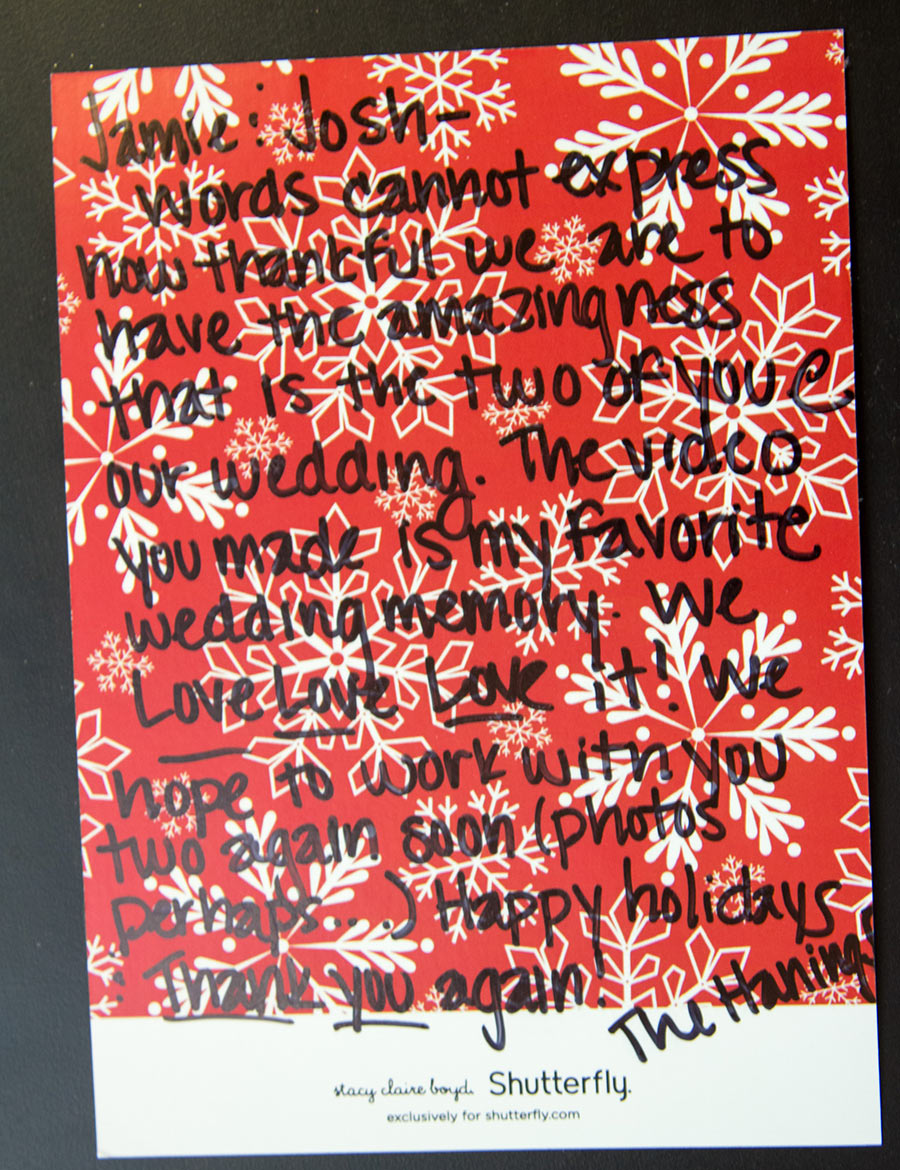 Jamie : Josh-
words cannot express
how thankful we are to
have the amazingness
that is the two of you @
our wedding. The video
you made is my favorite
wedding memory. We
Love Love Love it! We
hope to work with you
two again soon (photos
perhaps....) Happy holidays
: Thank you again!
The Hanims
stacy claire boyd. Shutterfly.
exclusively for shutterfly.com